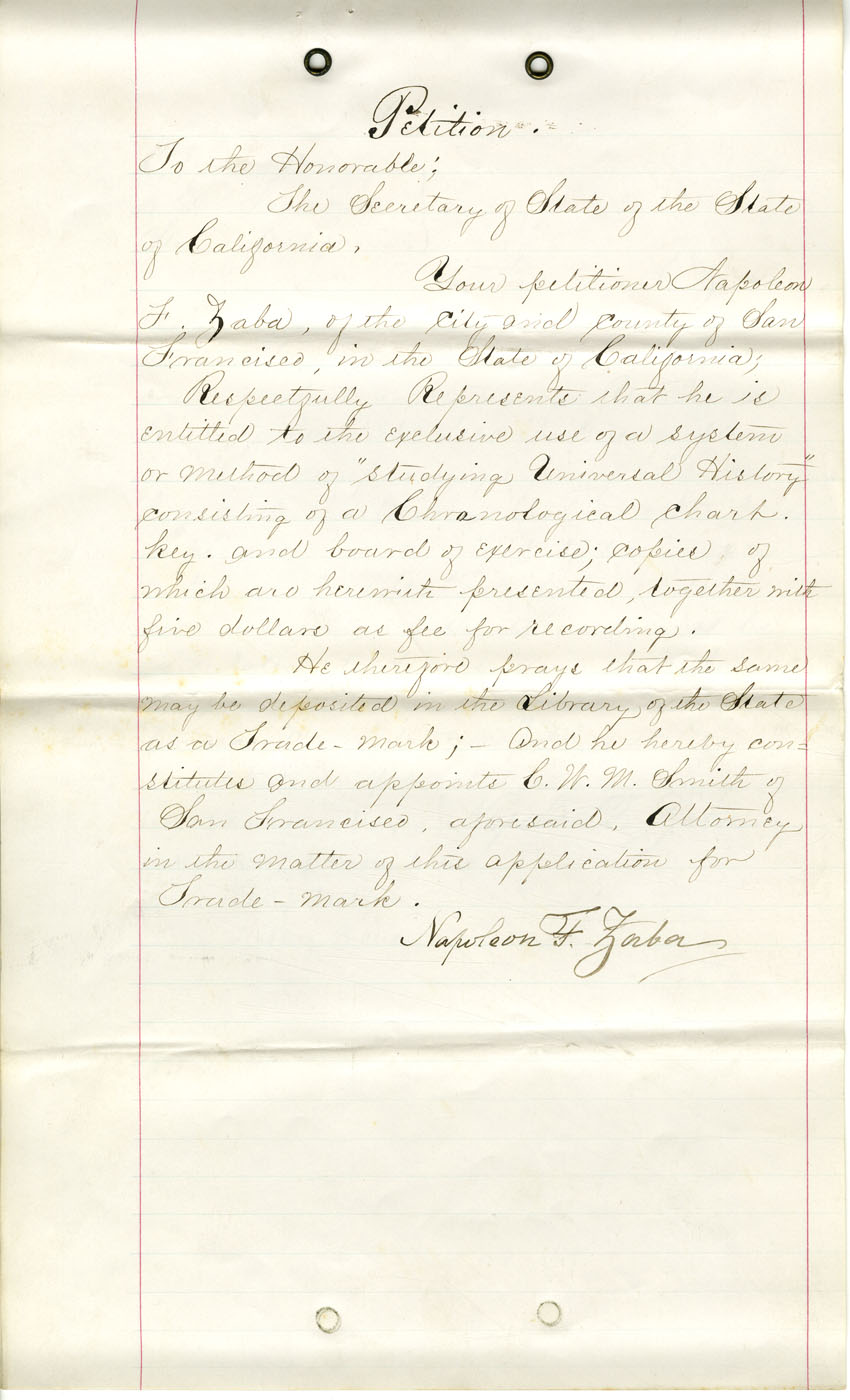 Petition.
To the Honorable;
The Secretary of State of the State
of California,
Your petitioner Napoleon
F. Zaba, of the city and county of San
Francisco, in the State of California;
Respectfully Represents that he is
entitled to the exclusive use of a system
or method of "studying Universal History"
consisting of a Chronological chart.
key. and board of exercise; copies of
which are herewith presented, together with
five dollars as fee for recording.
He therefore prays that the same
may be deposited in the Library of the State
as a Trade-mark; - And he hereby con=
stitutes and appoints C. W. M. Smith of
San Francisco, aforesaid, Attorney
in the matter of this application for
Trade-mark.
Napoleon F. Zaba